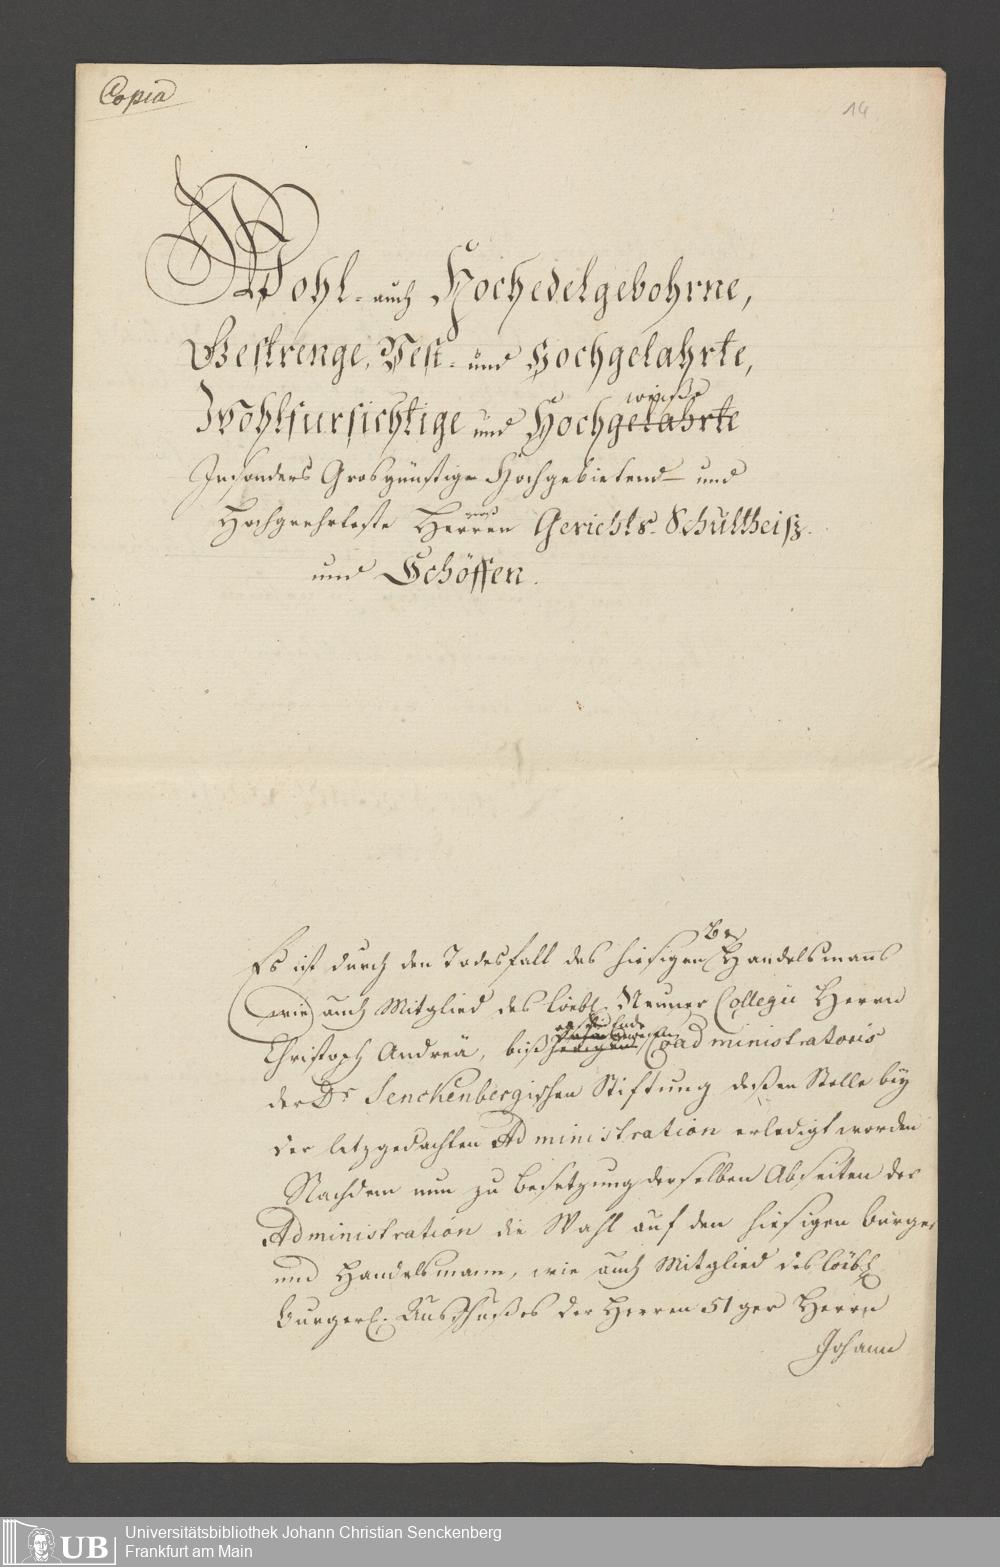 Copia
14
Wohl- auch Hochedelgebohrne,
Gestrenge, Vest- und Hochgelahrte,
weiße
Wohlfursichtige und Hochgelahrte
Insonders Grosgünstige Hochgebietend- und
Hochgeehrteste Herren Gerichts-Schultheiß
und Schöffen.
Es ist durch den Todesfall des hiesigen Handelsmanns
wie auch Mitglied des löebl. Neuner Collegii Herrn
Christoph Andreä, bißherigen Coadministratoris
der Dr Senckenbergischen Stiftung deßen Stelle bey
der letzgedachten Administration erledigt worden
Nachdem nun zu Besetzung derselben Abseiten der
Administration die Wahl auf den hiesigen burger
und Handelsmann, wie auch Mitglied des löebl.
burgerl. Ausschußes der Herren 51ger Herrn
Johann
UB
Universitätsbibliothek Johann Christian Senckenberg
Frankfurt am Main